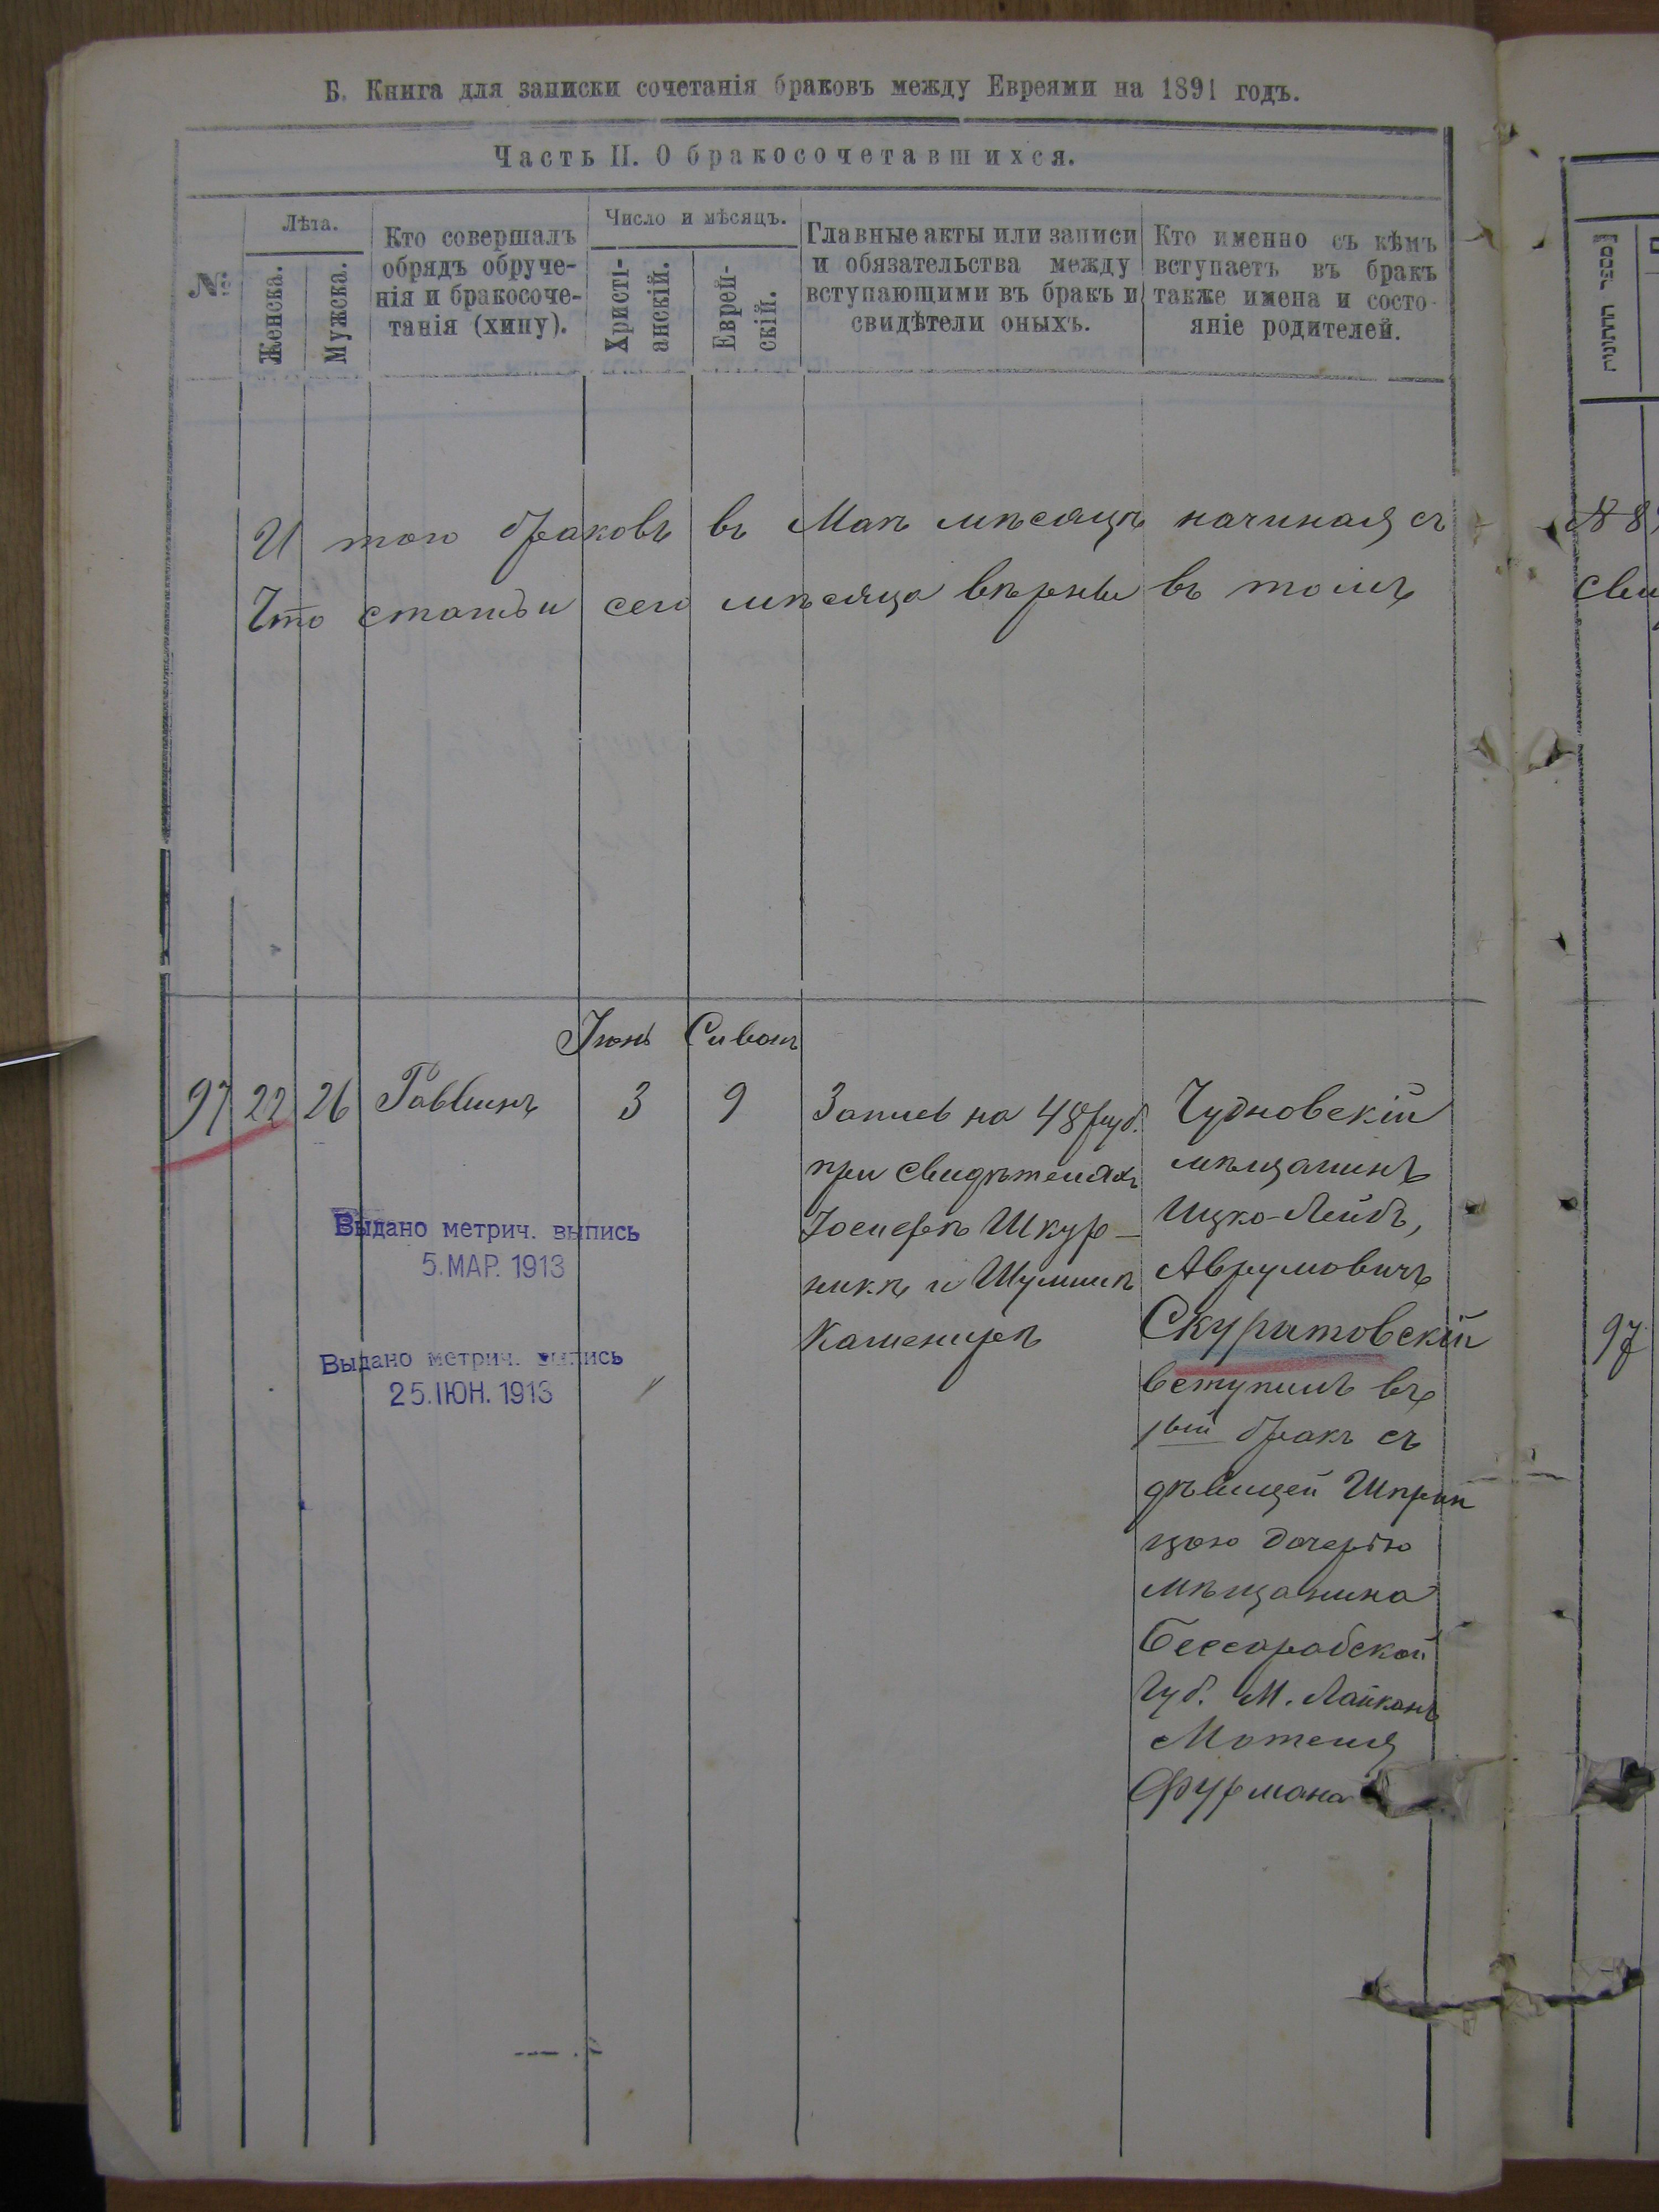 Б. Книга для записки сочетанія браковъ между Евреями на 1891 годъ.
Часть II. О бракосочетавшихся.
№
Лѣта.
Женска.
Мужска.
Кто совершалъ
обрядъ обруче-
нія и бракосоче-
танія (хипу).
Число и мѣсяцъ.
Христі-
анскій.
Еврей-
скій.
Главные акты или записи
и обязательства между
вступающими въ бракъ и
свидѣтели оныхъ.
Кто именно съ кѣмъ
вступаетъ въ бракъ
также имена и состо-
яніе родителей.
И того браковъ въ Маѣ мѣсяцѣ начиная съ
Что статьи сего мѣсяца вѣрны въ томъ
Іюнь Сивонъ
97 22 26 Раввинъ 3 9
Запись на 48 руб.
при свидѣтеляхъ
Іосифѣ Шкур-
никѣ и Шумиѣ
Каменирѣ
Чудновскій
мѣщанинъ
Ицко-Лейбъ,
Аврумовичъ
Скуратовскій
вступилъ въ
1вый бракъ съ
дѣвицей Шприн
цою дочерью
мѣщанина
Бессарабской
Губ. М. Лайканъ
Мотеля
Фурмана
Выдано метрич. выпись
5.МАР. 1913
Выдано метрич. выпись
25.ІЮН. 1913
מספר החתונות
№ 8
сви
97